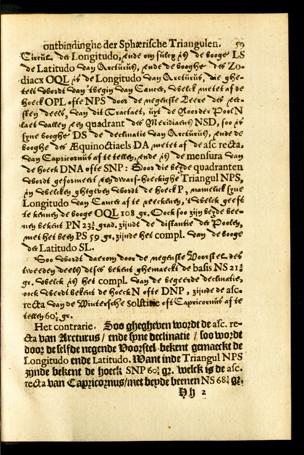 ontbindinghe der Sphærische Triangulen.
Circul des Longitudo, ende om sulcx is de booge LS
de Latitudo van Arcturus, ende de booghe des Zo-
diacx OQL is de Longitudo van Arcturus, die ghe-
telt wordt van t'begin van Cancer, welck metet af de
hoeck OPL ofte NPS door de negenste
deels, van dit Tractaet, uyt de Noorder Pool N
laet vallen een quadrant des Meridiaens NSD, soo is
syne booghe DS de declinatie van Arcturus, ende de
booghe der Æquinoctiaels DA metet af de asc. recta,
van Capricornus af te tellen, ende is de mensura van
de hoeck DNA ofte SNP: Soo die beyde quadranten
wordt geformeert een dwars-hoeckighe Triangul NPS,
in welcken ghegheven wordt de hoeck P, namelick syne
Longitudo van Cancer af te reeckenen, t'welck geeft
te kennen de booge OQL 108 gr. Oock soo zijn beyde bee-
nen bekent PN 23½ graed, zijnde de distantie der Poolen,
met het been PS 59 gr. zijnde het compl. van de booge
der Latitudo SL.
Soo wordt daerom door de negenste Voorstel des
tweeden deels deser bekent ghemaeckt de basis NS 21¾
gr. welck is het compl. van de begeerde declinatie,
oock wordt bekent de hoeck N ofte DNP, zijnde de asc.
recta van de Wintersche Solstitie oft Capricornus af te
tellen 60¾ gr.
Het contrarie. Soo ghegheven wordt de asc. re-
cta van Arcturus / ende syne declinatie / soo wordt
door de selfde negende Voorstel bekent gemaeckt de
Longitudo ende Latitudo. Want inde Triangul NPS
zijnde bekent de hoeck SNP 60¾ gr. welck is de asc.
recta van Capricornus / met beyde beenen NS 68¾ gr.
Hh 2